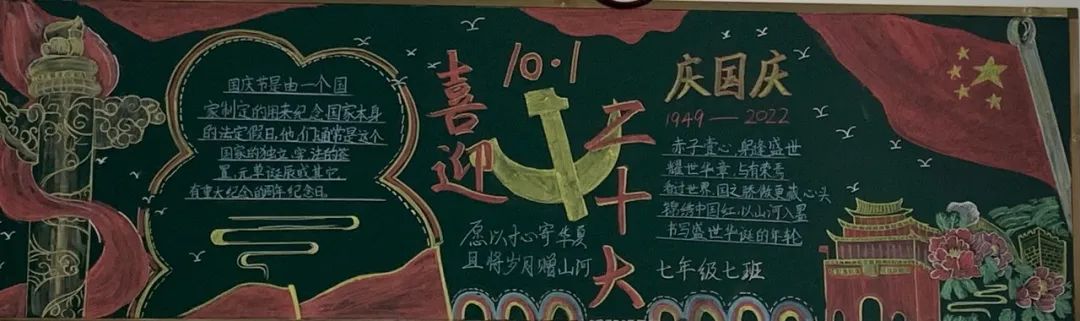 国庆节是由一个国
家制定的用来纪念国家本身
的法定假日,他们通常是这个
国家的独立、宪法的签
署、元单诞辰或其它
有重大纪念的周年纪念日。
喜迎
10·1
二十大
愿以寸心寄华夏
且将岁月赠山河
庆国庆
1949—2022
赤子丹心,
盛世
耀世华章,与有荣焉
世界,国之骄傲更藏心头
锦绣中国红,以山河入墨
书写盛世华诞的年轮
七年级七班